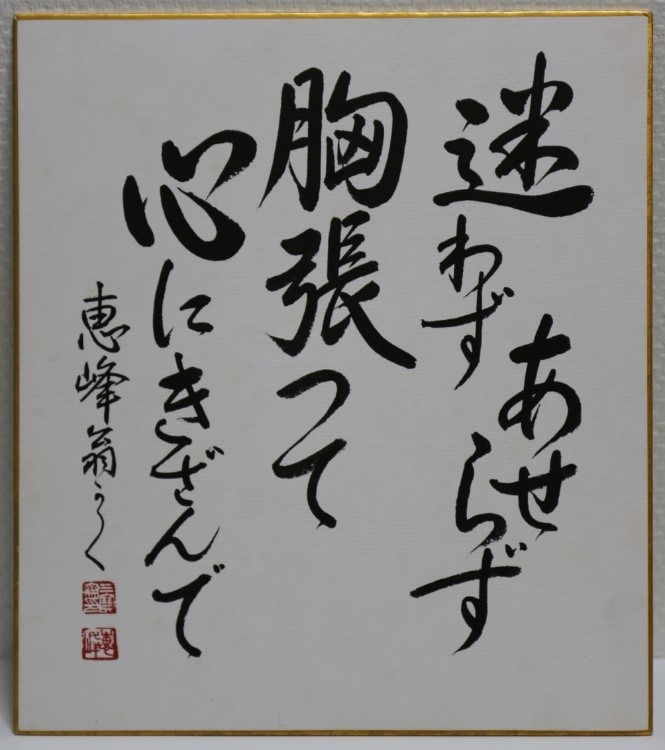 迷わず
あせらず
胸張って
心にきざんで
恵峰翁かく